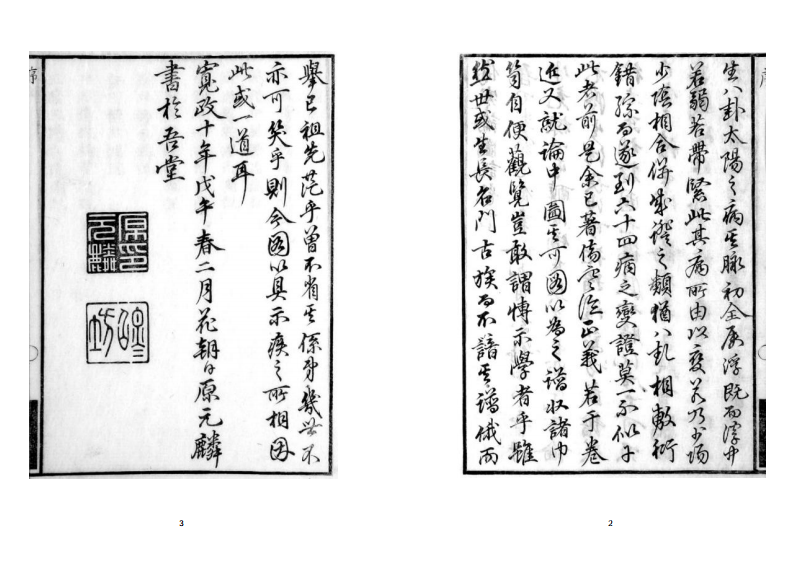 生八卦太陽之病其脈初全居浮既而浮中
若弱若帶緊此其病所由以變若乃少陽
少陰相合併或證之類猶八卦相敷衍
錯綜而遂到六十四病之變證莫一不似于
此者前是余已著傷寒論正義若干卷
近又就論中圖其可圖以為之譜收諸巾
笥自便觀覽豈敢謂博示學者乎雖
然世或生長名門古族而不諳其譜俄而
2
舉已祖先茫乎曾不省其係身幾世不
亦可笑乎則今圖以具示疾之所相因
此或一道耳
寬政十年戊午春二月花朝日原元麟
書於吾堂
原印
元麟
3